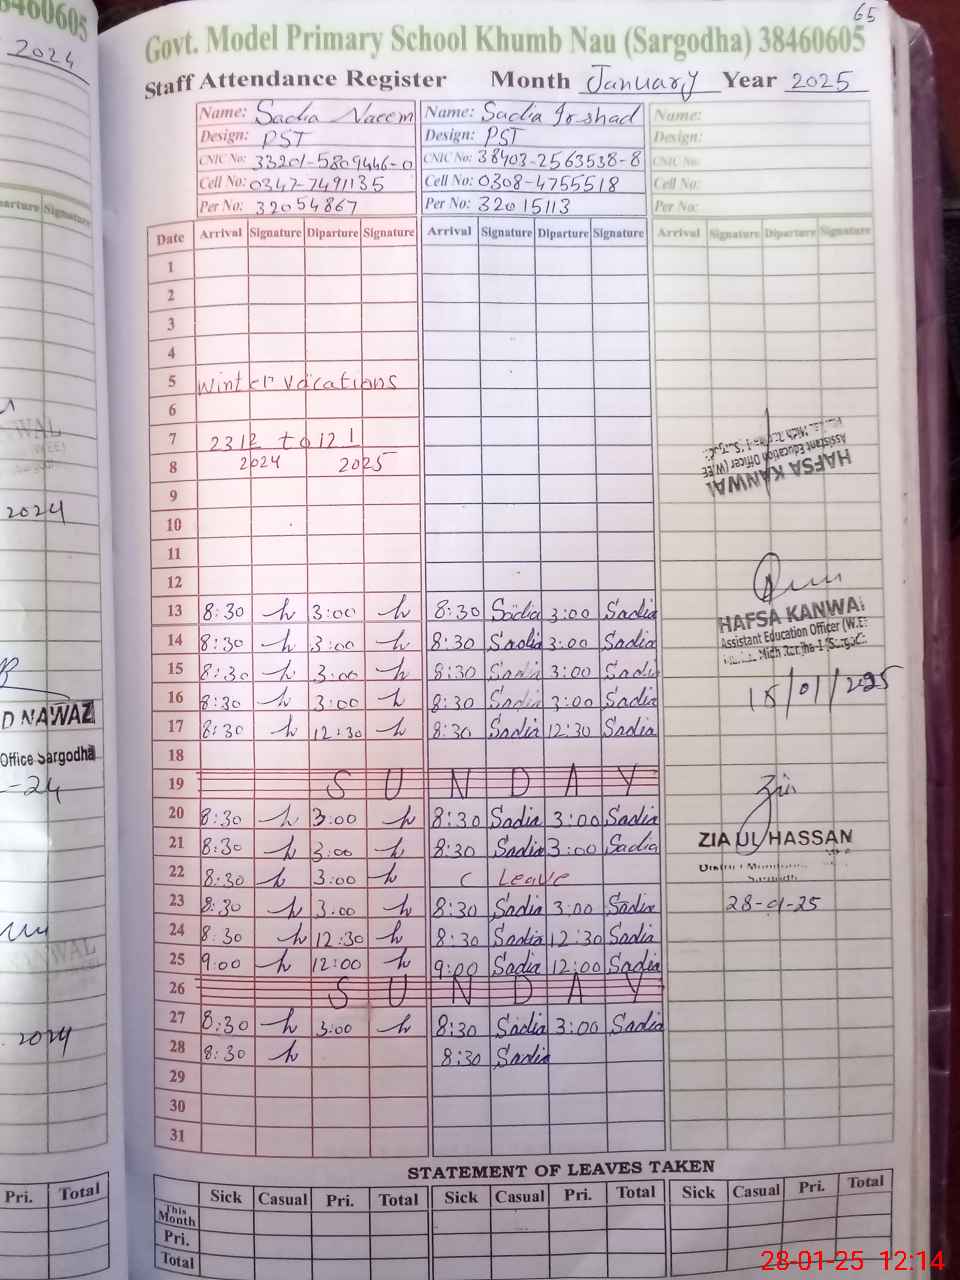 38460605
65
2024
Govt. Model Primary School Khumb Nau (Sargodha) 38460605
Staff Attendance Register Month January Year 2025
Name: Sadia Naeem Name: Sadia Irshad Name:
Design: PST Design: PST Design:
CNIC No: 33201-5809446-0 CNIC No: 38403-2563538-8 CNIC No:
Cell No: 0347-7491135 Cell No: 0308-4755518 Cell No:
Per No: 32054867 Per No: 32015113 Per No:
Date Arrival Signature Diparture Signature Arrival Signature Diparture Signature Arrival Signature Diparture Signature
1
2
3
4
5 Winter vacations
6
7 23 12 to 12 1
8 2024 2025
9
10
11
12
13 8:30 3:00 8:30 Sadia 3:00 Sadia
14 8:30 3:00 8:30 Sadia 3:00 Sadia
15 8:30 3:00 8:30 Sadia 3:00 Sadia
16 8:30 3:00 8:30 Sadia 3:00 Sadia
17 8:30 12:30 8:30 Sadia 12:30 Sadia
18
19 SUNDAY
20 8:30 3:00 8:30 Sadia 3:00 Sadia
21 8:30 3:00 8:30 Sadia 3:00 Sadia
22 8:30 3:00 C Leave
23 8:30 3:00 8:30 Sadia 3:00 Sadia
24 8:30 12:30 8:30 Sadia 12:30 Sadia
25 9:00 12:00 9:00 Sadia 12:00 Sadia
26 SUNDAY
27 8:30 3:00 8:30 Sadia 3:00 Sadia
28 8:30 8:30 Sadia
29
30
31
HAFSA KANWAL
Assistant Education Officer (W.EE
HAFSA KANWAL
Assistant Education Officer (W.E
ZIA UL HASSAN
28-01-25
STATEMENT OF LEAVES TAKEN
Sick Casual Pri. Total Sick Casual Pri. Total Sick Casual Pri. Total
This Month
Pri.
Total
Signature
2024
D NAWAZ
Office Sargodha
-24
2024
Pri. Total
28-01-25 12:14